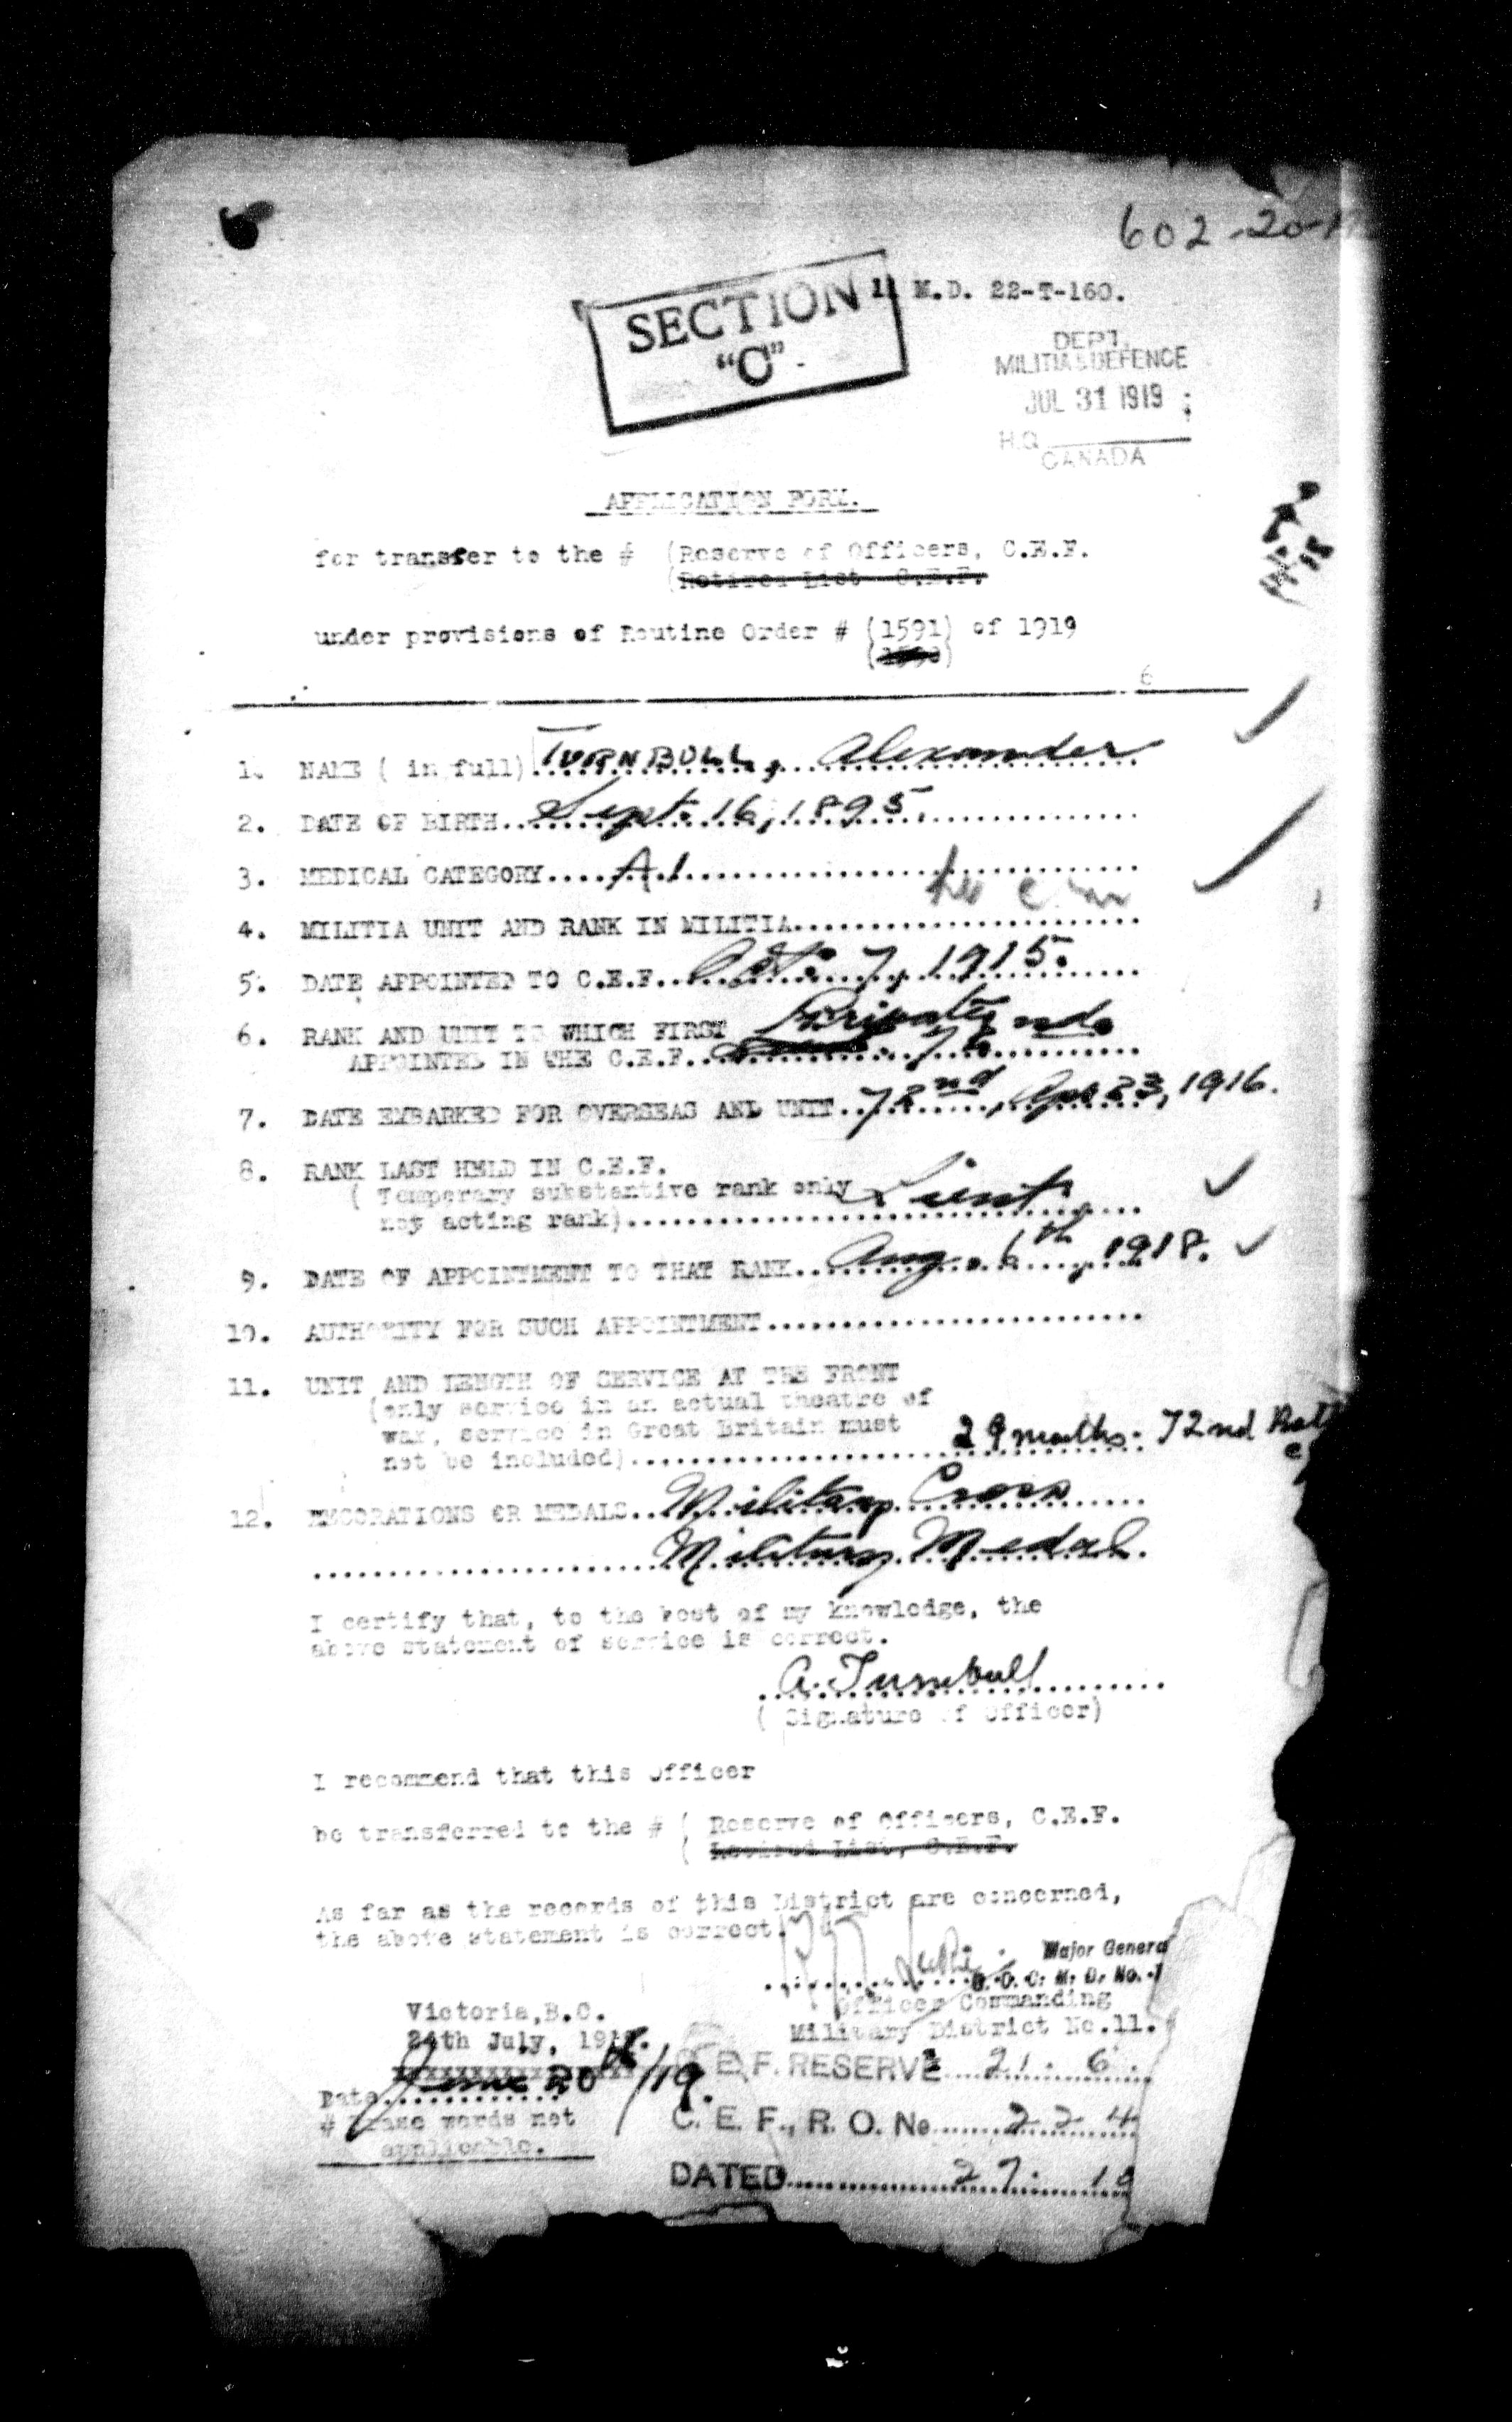 602-20-
SECTION
"C"
11 M.D. 22-T-160.
DEPT.
MILITIA & DEFENCE
JUL 31 1919
H.Q.
CANADA
APPLICATION FORM.
for transfer to the # (Reserve of Officers, C.E.F.
(Retired List C.E.F.
under provisions of Routine Order # (1591) of 1919
6
1. NAME ( in full) TURNBULL, Alexander
2. DATE OF BIRTH..Sept. 16, 1895.
3. MEDICAL CATEGORY....A.1
4. MILITIA UNIT AND RANK IN MILITIA
5. DATE APPOINTED TO C.E.F...Oct. 7, 1915.
6. RANK AND UNIT TO WHICH FIRST Private
APPOINTED IN THE C.E.F... 72nd.
7. DATE EMBARKED FOR OVERSEAS AND UNIT..72nd, Apr 23, 1916.
8. RANK LAST HELD IN C.E.F.
( Temporary substantive rank only Lieut.
not acting rank)
9. DATE OF APPOINTMENT TO THAT RANK..Aug. 6th, 1918.
10. AUTHORITY FOR SUCH APPOINTMENT
11. UNIT AND LENGTH OF SERVICE AT THE FRONT
(only service in an actual theatre of
war, service in Great Britain must
not be included) 29 months. 72nd Batt
12. DECORATIONS OR MEDALS..Military Cross
Military Medal.
I certify that, to the best of my knowledge, the
above statement of service is correct.
A. Turnbull
( Signature of Officer)
I recommend that this Officer
be transferred to the # ( Reserve of Officers, C.E.F.
( Retired List, C.E.F.
As far as the records of this District are concerned,
the above statement is correct.
Major Genera
G. O. C. M. D. No.
Officer Commanding
Military District No.11.
Victoria, B.C.
24th July, 191
Date June 20th/19.
# Erase words not
applicable.
C. E. F. RESERVE 21. 6.
C. E. F., R. O. No 224
DATED 27. 10